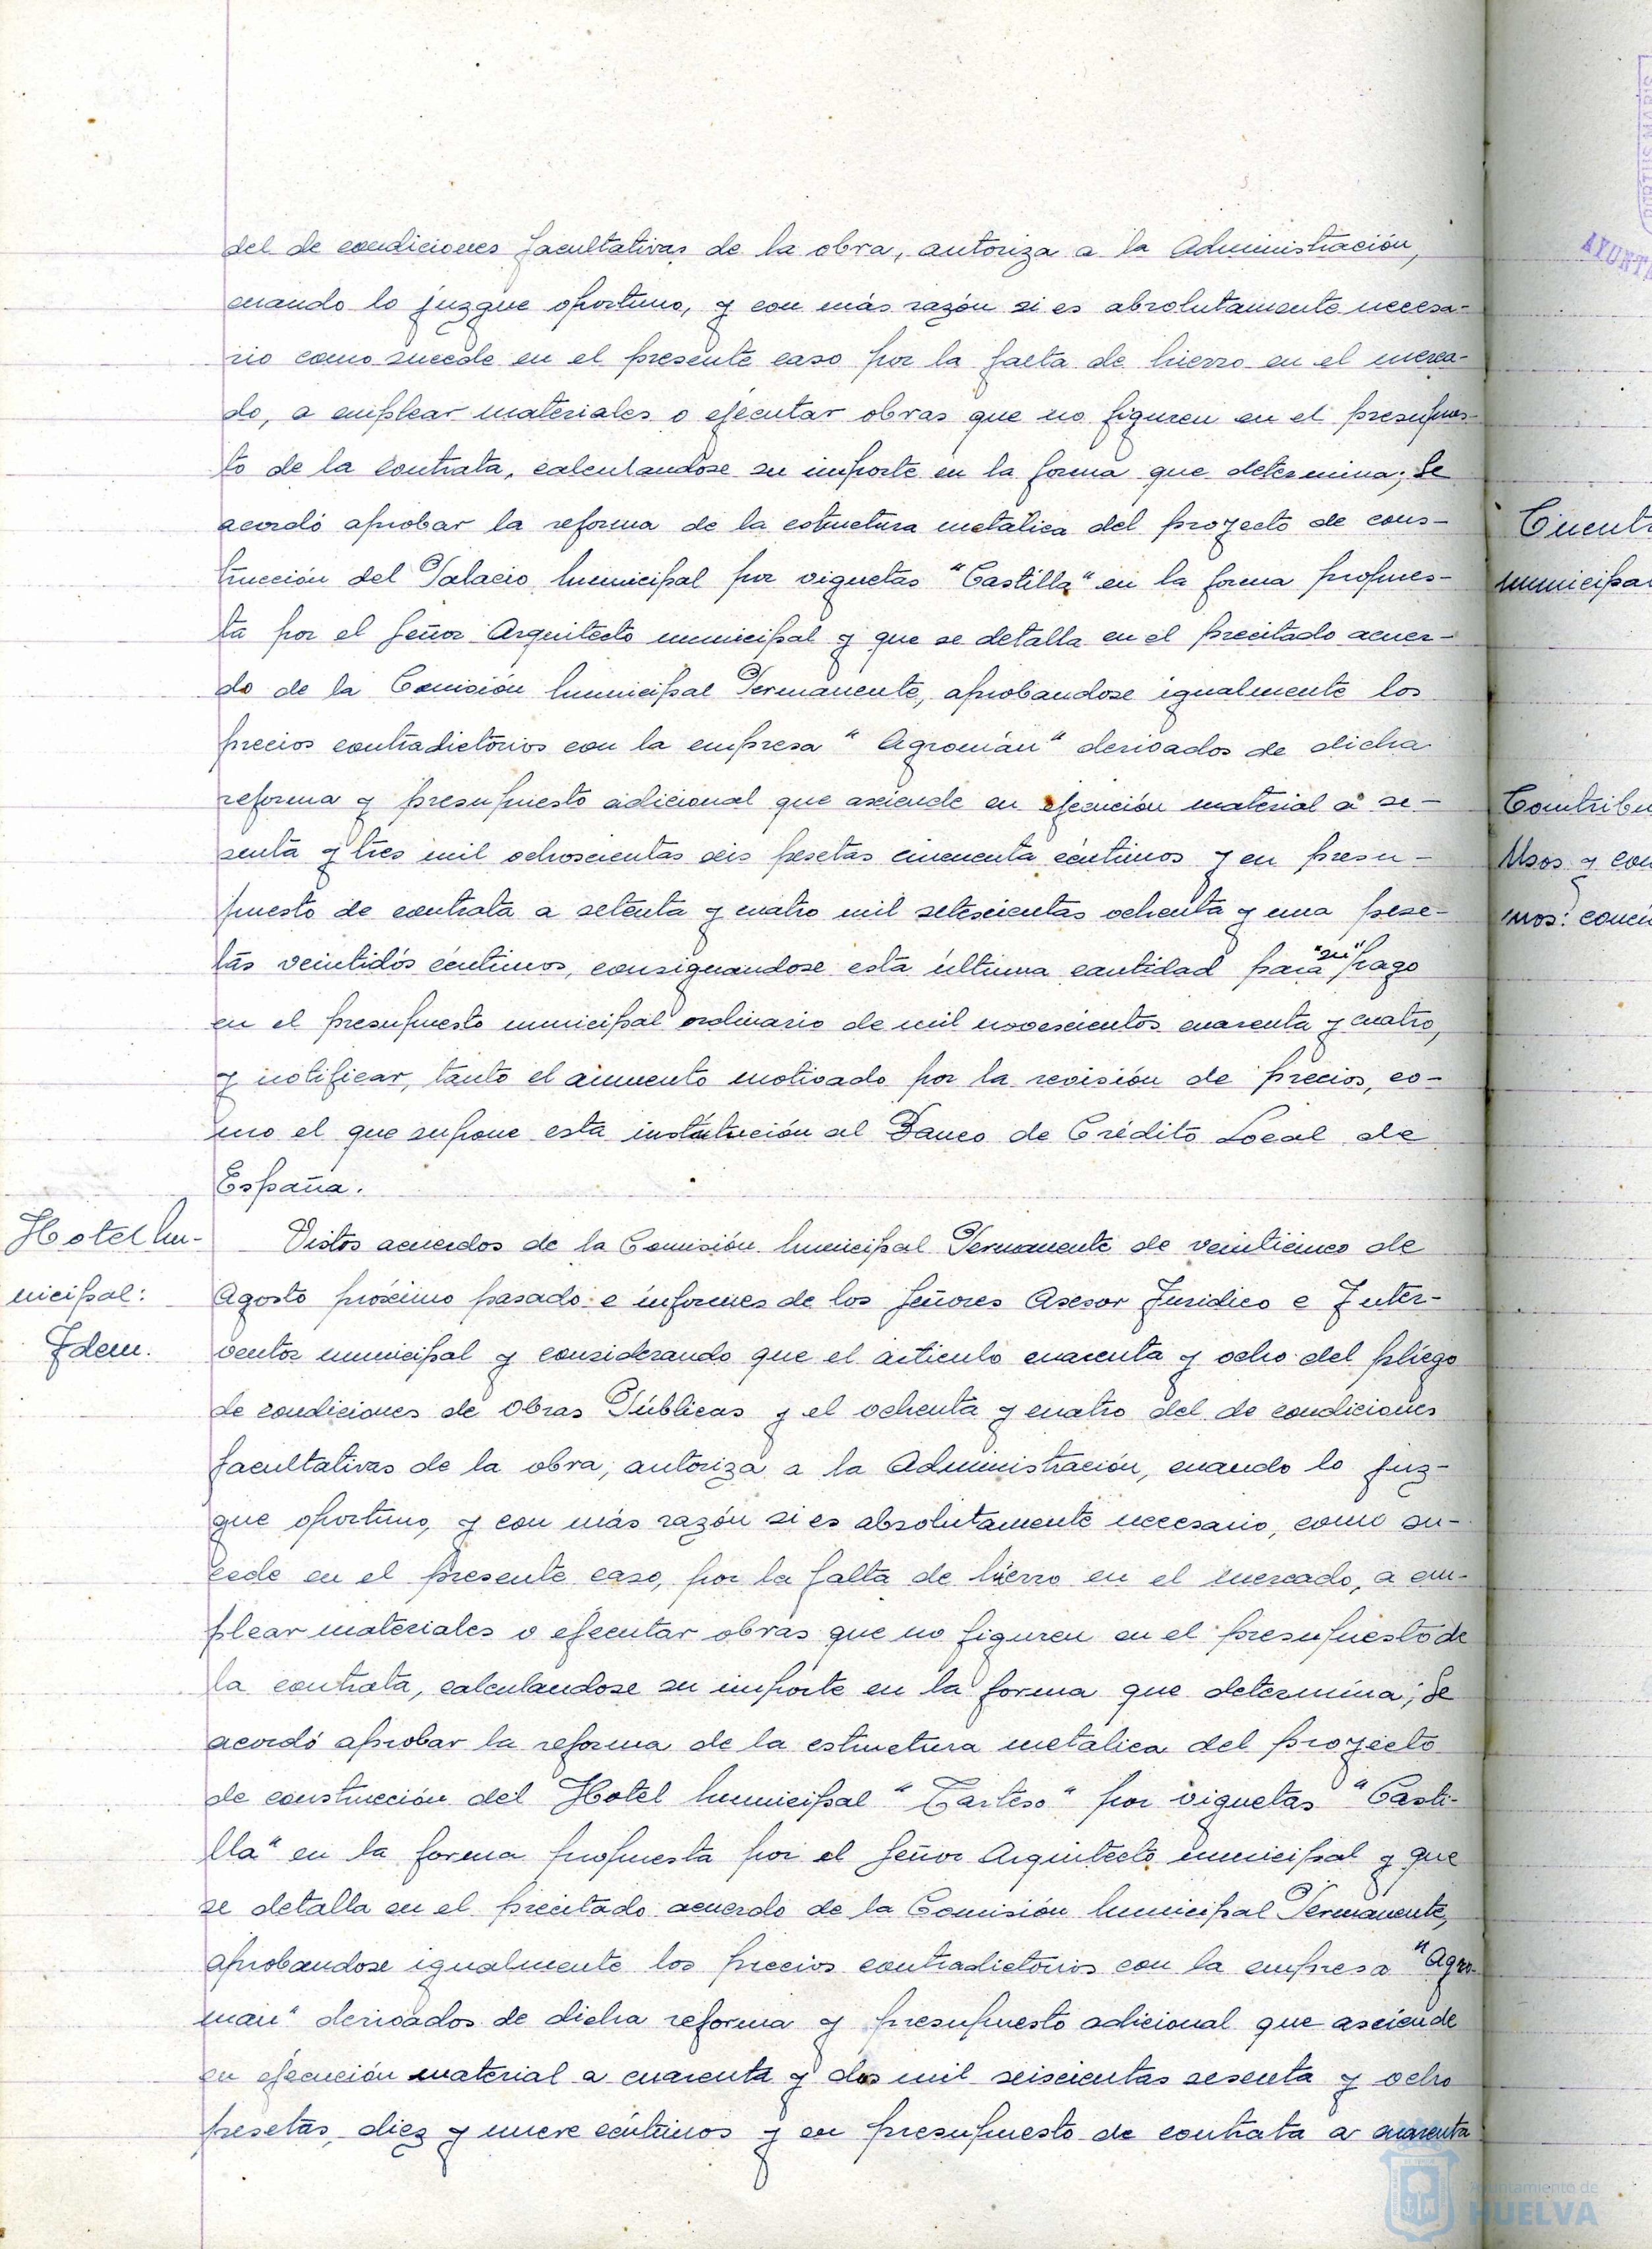 del de condiciones facultativas de la obra, autoriza a la Administración,
cuando lo juzgue oportuno, y con más razón si es absolutamente necesa-
rio como sucede en el presente caso por la falta de hierro en el merca-
do, a emplear materiales o ejecutar obras que no figuren en el presupues-
to de la contrata, calculandose su importe en la forma que determina; Se
acordó aprobar la reforma de la estructura metalica del proyecto de cons-
trucción del Palacio Municipal por viguetas "Castilla" en la forma propues-
ta por el Señor Arquitecto municipal y que se detalla en el precitado acuer-
do de la Comisión Municipal Permanente, aprobandose igualmente los
precios contradictorios con la empresa "Agromán" derivados de dicha
reforma y presupuesto adicional que asciende en ejecución material a se-
senta y tres mil ochoscientas seis pesetas cincuenta céntimos y en presu-
puesto de contrata a setenta y cuatro mil setescientas ochenta y una pese-
tas veintidós céntimos, consignandose esta última cantidad para "su" pago
en el presupuesto municipal ordinario de mil novescientos cuarenta y cuatro,
y notificar, tanto el aumento motivado por la revisión de precios, co-
mo el que supone esta institución al Banco de Crédito Local de
España.
Hotel Mu-
nicipal:
Idem.
Vistos acuerdos de la Comisión Municipal Permanente de veinticinco de
Agosto próximo pasado e informes de los Señores Asesor Juridico e Inter-
ventor municipal y considerando que el artículo cuarenta y ocho del pliego
de condiciones de Obras Públicas y el ochenta y cuatro del de condiciones
facultativas de la obra, autoriza a la Administración, cuando lo juz-
gue oportuno, y con más razón si es absolutamente necesario, como su-
cede en el presente caso, por la falta de hierro en el mercado, a em-
plear materiales o ejecutar obras que no figuren en el presupuesto de
la contrata, calculandose su importe en la forma que determina; Se
acordó aprobar la reforma de la estructura metalica del proyecto
de construcción del Hotel Municipal "Tarteso" por viguetas "Casti-
lla" en la forma propuesta por el Señor Arquitecto municipal y que
se detalla en el precitado acuerdo de la Comisión Municipal Permanente,
aprobandose igualmente los precios contradictorios con la empresa "Agro-
man" derivados de dicha reforma y presupuesto adicional que asciende
en ejecución material a cuarenta y dos mil seiscientas sesenta y ocho
pesetas, diez y nueve céntimos y en presupuesto de contrata a cuarenta
municipal
Usos y
AYUNTA
Ayuntamiento de
HUELVA